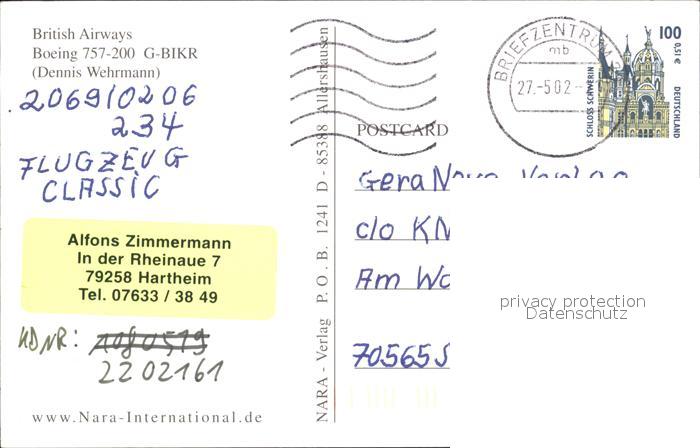 British Airways
Boeing 757-200 G-BIKR
(Dennis Wehrmann)
2069/0206
234
FLUGZEUG
CLASSIC
Alfons Zimmermann
In der Rheinaue 7
79258 Hartheim
Tel. 07633 / 38 49
KDNR: 1080519
2202161
www.Nara-International.de
NARA - Verlag P.O.B. 1241 D - 85388 Allershausen
POSTCARD
BRIEFZENTRUM
mb
27.-5.02.-
100
0,51 €
SCHLOSS SCHWERIN
DEUTSCHLAND
GeraNova Verlag
c/o KN
Am Wa
70565 S
privacy protection
Datenschutz